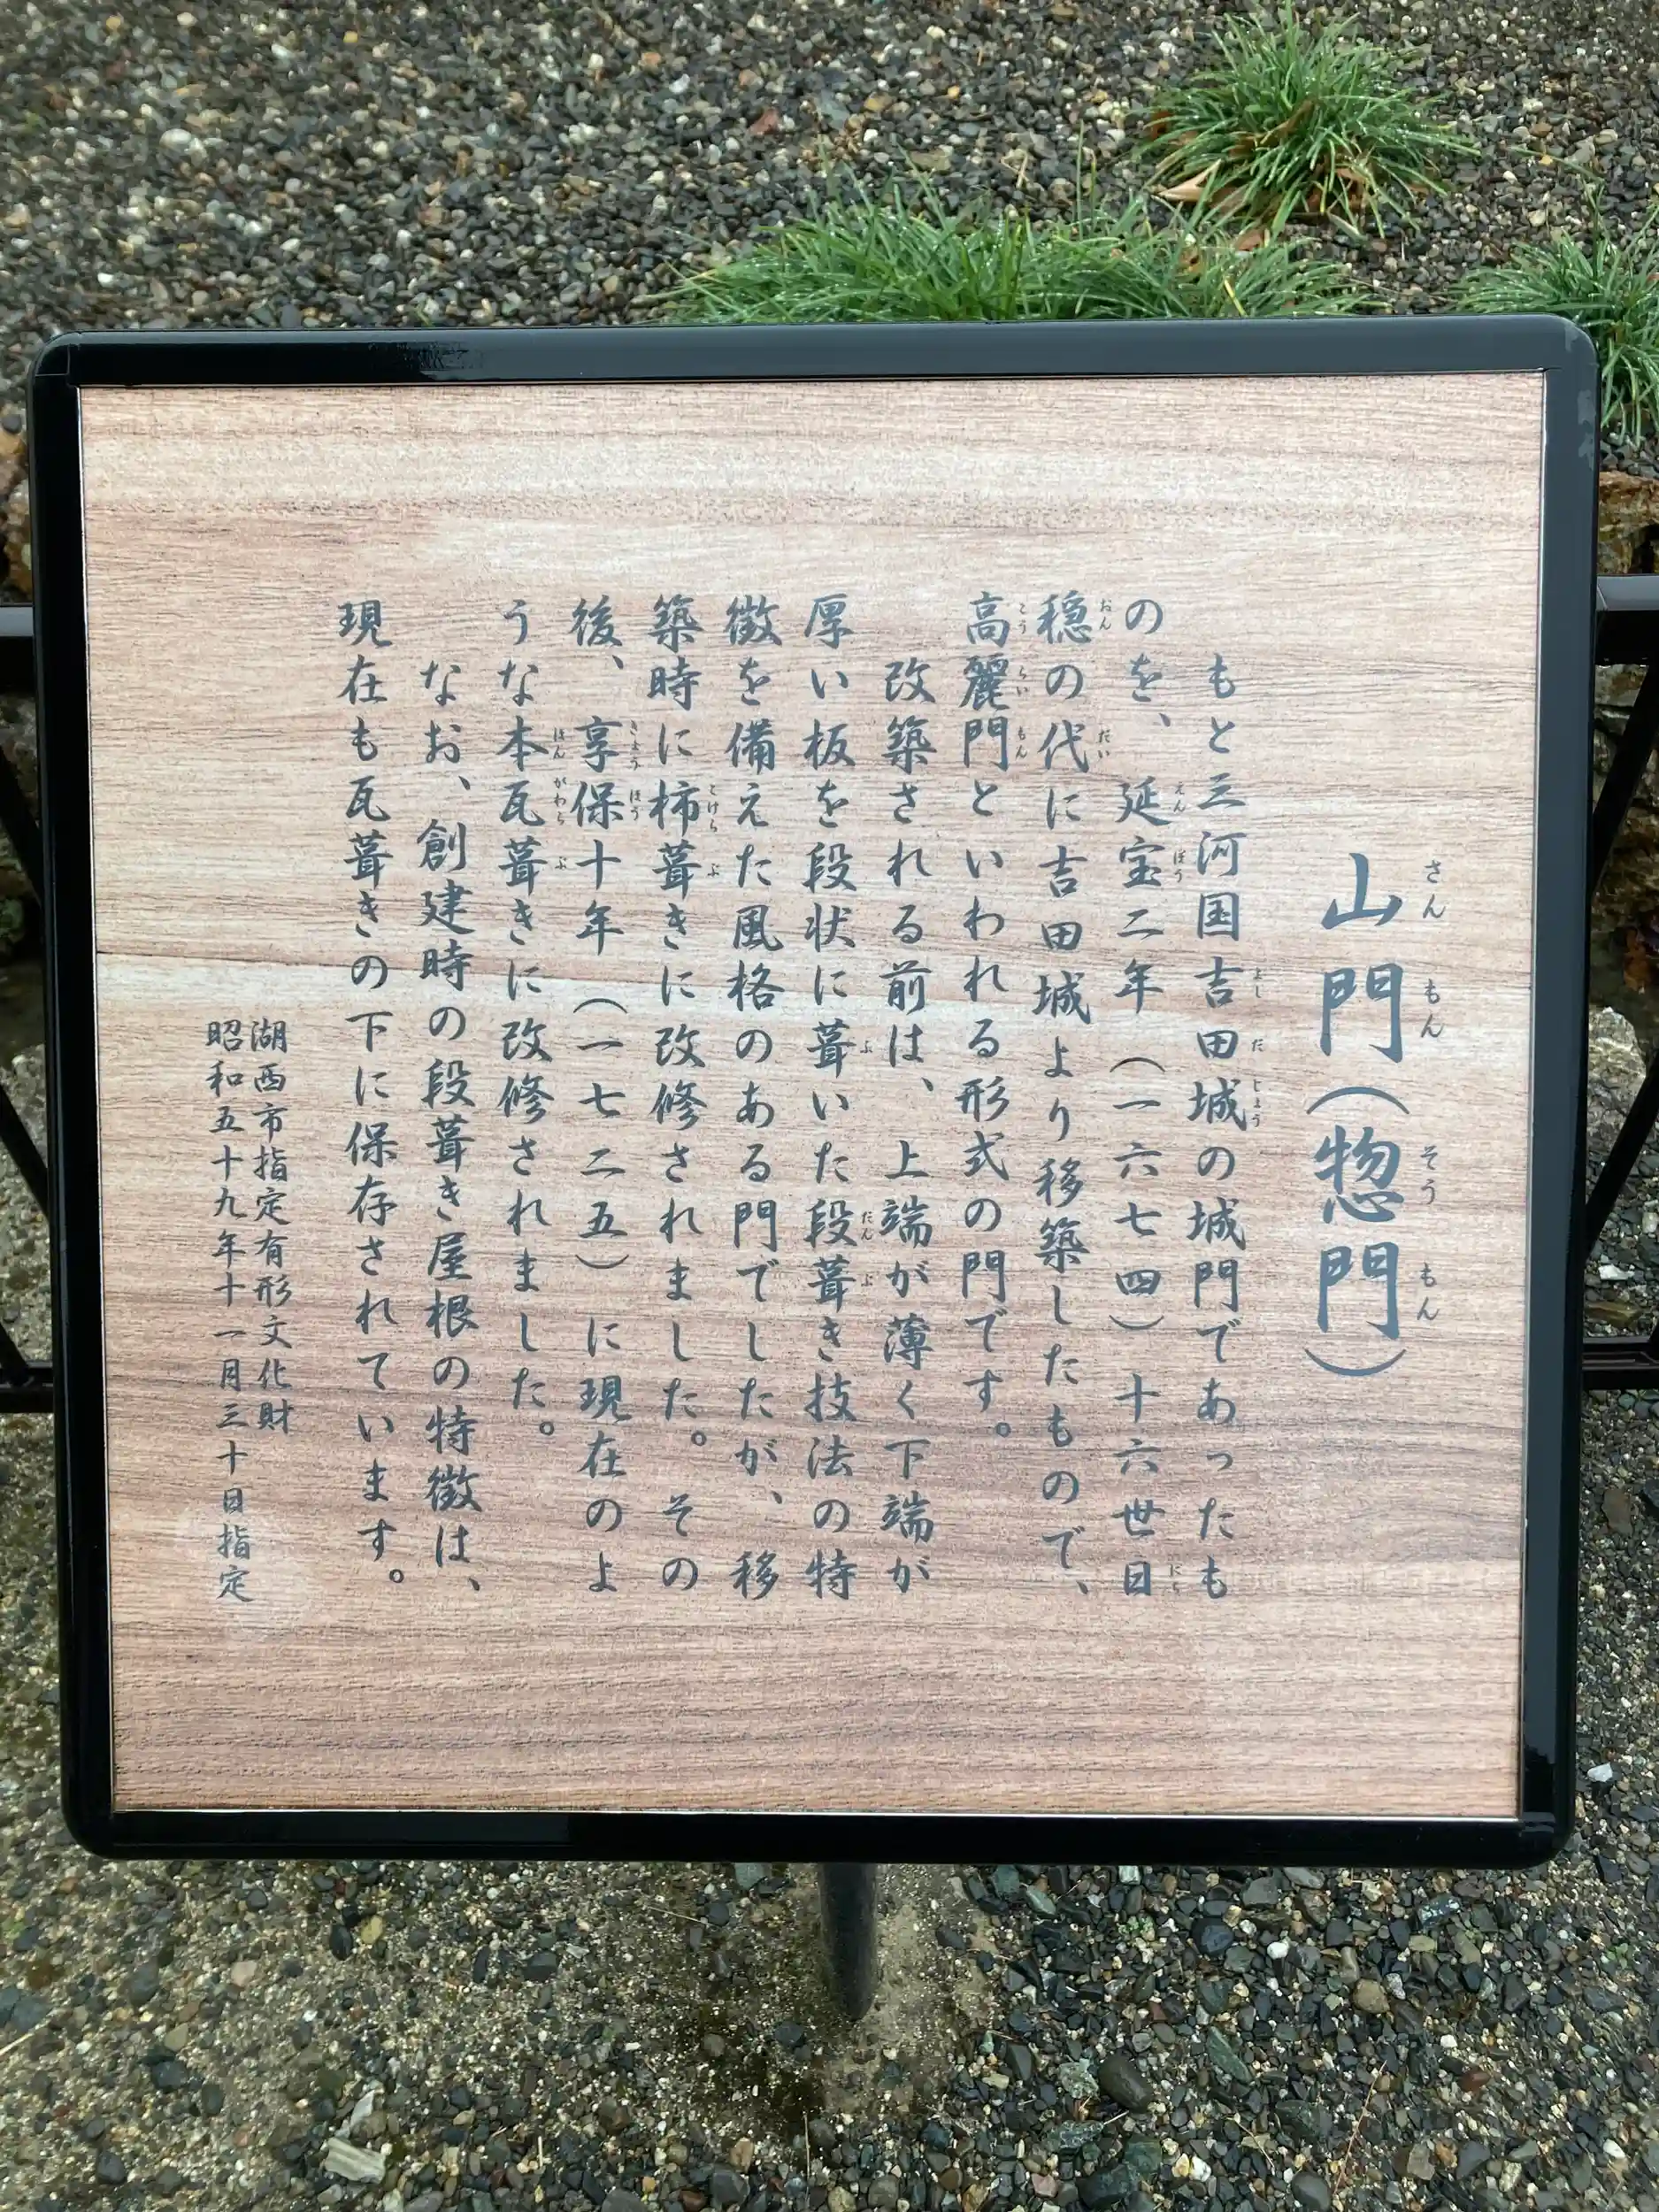 山門（惣門）
もと三河国吉田城の城門であったも
のを、延宝二年（一六七四）十六世日
穏の代に吉田城より移築したもので、
高麗門といわれる形式の門です。
改築される前は、上端が薄く下端が
厚い板を段状に葺いた段葺き技法の特
徴を備えた風格のある門でしたが、移
築時に柿葺きに改修されました。その
後、享保十年（一七二五）に現在のよ
うな本瓦葺きに改修されました。
なお、創建時の段葺き屋根の特徴は、
現在も瓦葺きの下に保存されています。
湖西市指定有形文化財
昭和五十九年十一月三十日指定